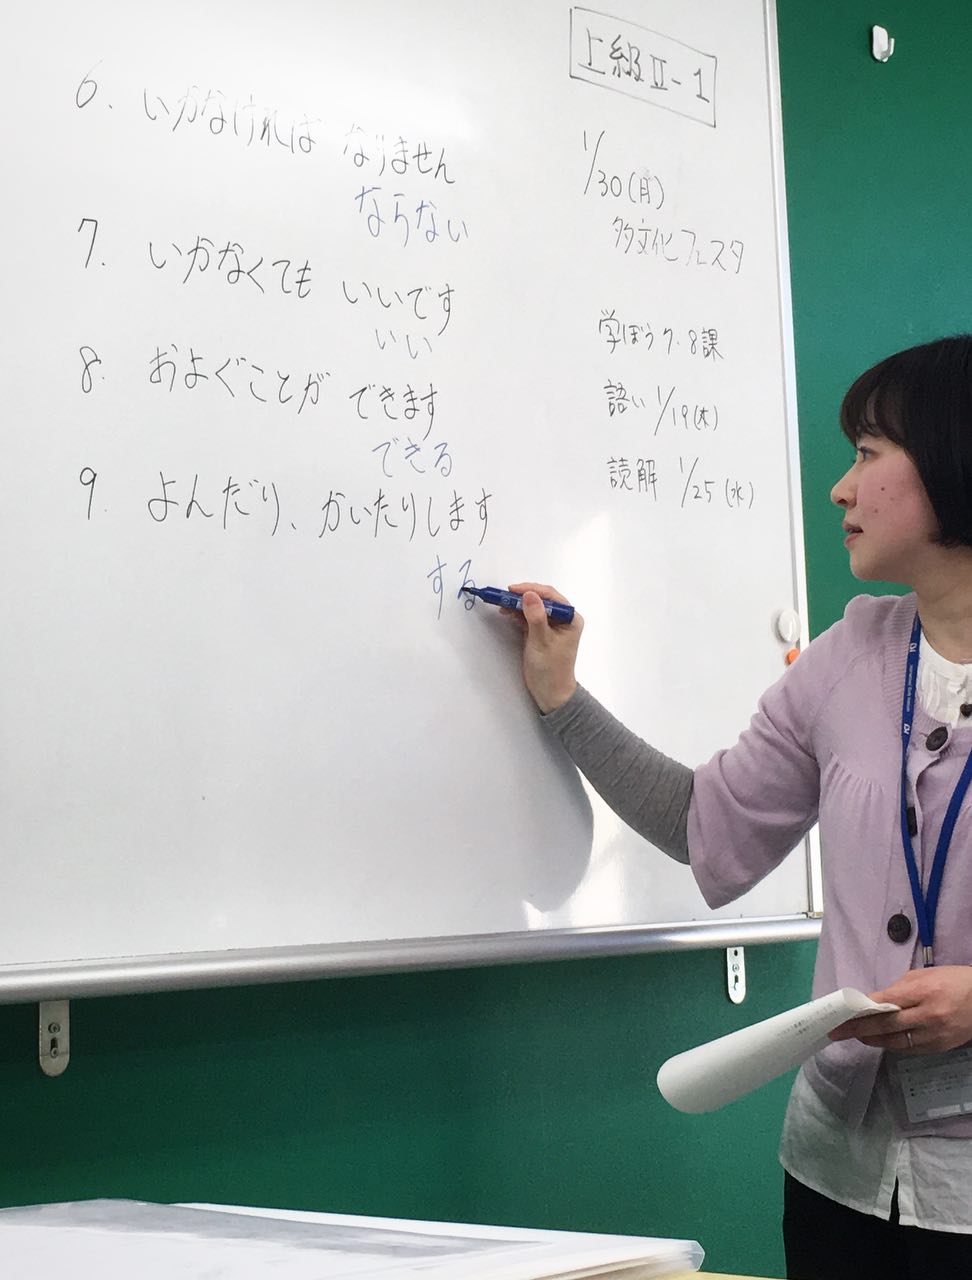 6. いかなければ なりません
ならない
7. いかなくても いいです
いい
8. およぐことが できます
できる
9. よんだり、かいたりします
する
上級Ⅱ-1
1/30(月)
多文化フェスタ
学ぼう7.8課
語い 1/19(木)
読解 1/25(水)